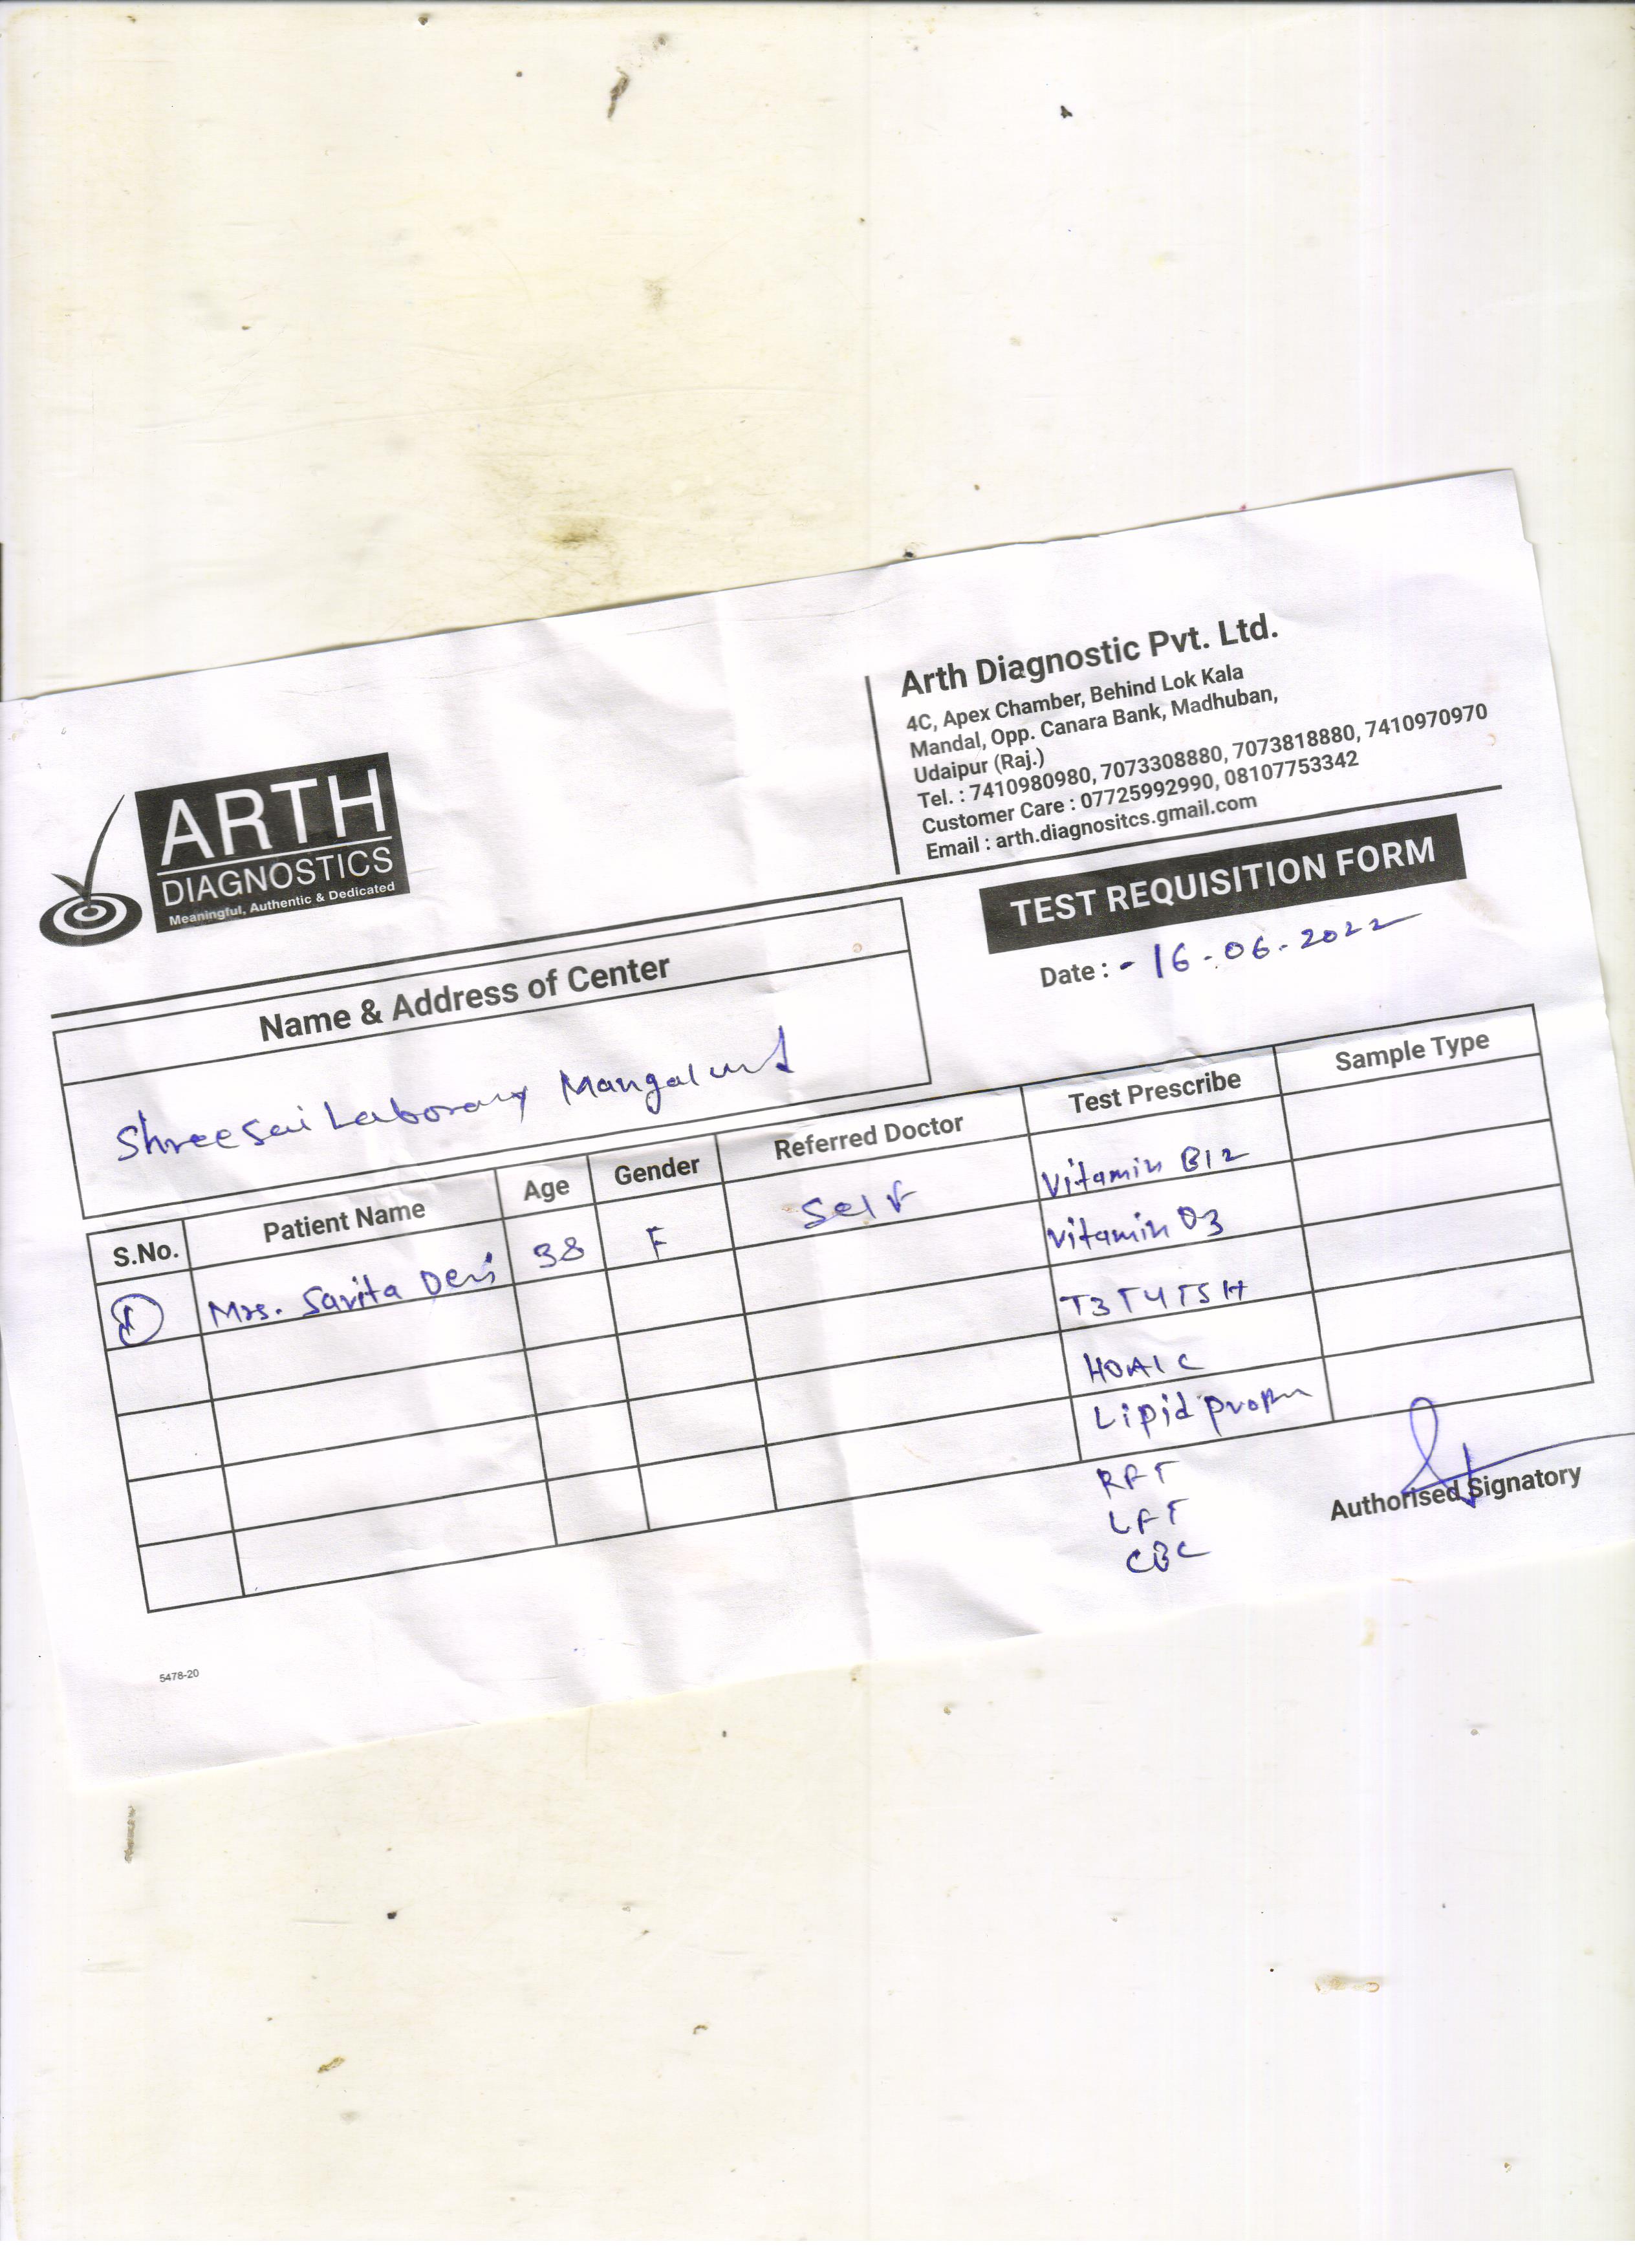 ARTH
DIAGNOSTICS
Meaningful, Authentic & Dedicated
Arth Diagnostic Pvt. Ltd.
4C, Apex Chamber, Behind Lok Kala
Mandal, Opp. Canara Bank, Madhuban,
Udaipur (Raj.)
Tel. : 7410980980, 7073308880, 7073818880, 7410970970
Customer Care : 07725992990, 08107753342
Email : arth.diagnositcs.gmail.com
TEST REQUISITION FORM
Date : - 16-06-2022
Name & Address of Center
Shree Sai
S.No. Patient Name Age Gender Referred Doctor Test Prescribe Sample Type
1 Mrs. Savita Devi 38 F Self Vitamin B12
Vitamin D3
T3 T4 TSH
Lipid
RFT
LFT
CBC
Authorised Signatory
5478-20